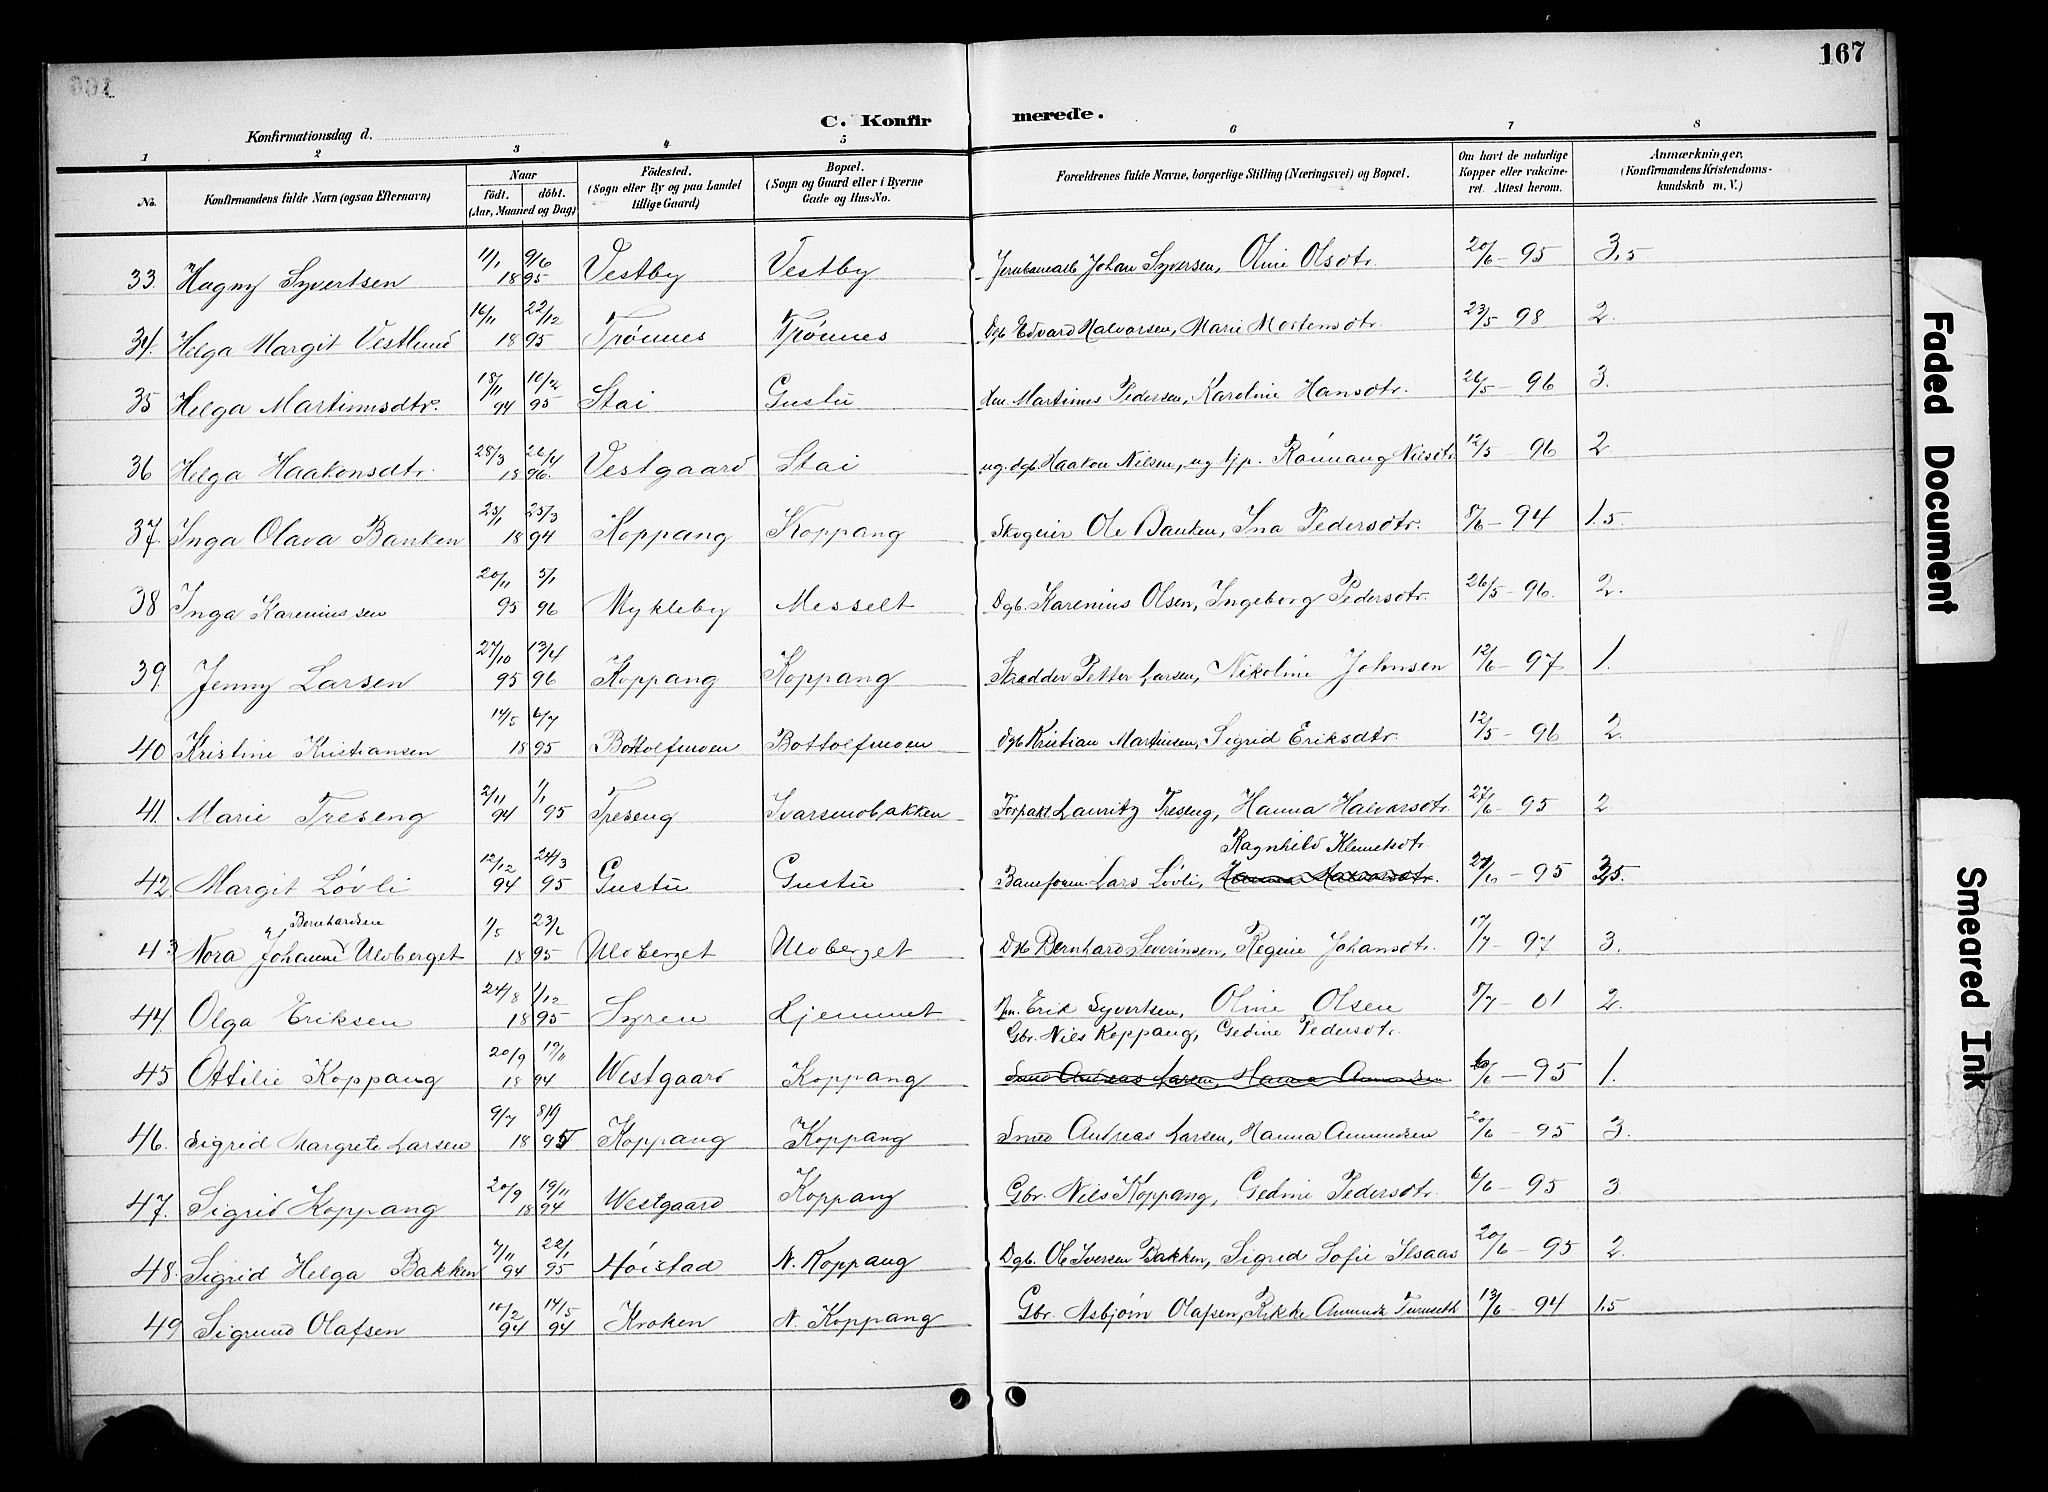 167
C. Konfirmerede.
Konfirmationsdag d.
1 2 3 4 5 6 7 8
No. Konfirmandens fulde Navn (ogsaa Efternavn) Naar født. døbt. (Aar, Maaned og Dag) Fødested. (Sogn eller By og paa Landet tillige Gaard) Bopæl. (Sogn og Gaard eller i Byerne Gade og Hus-No. Forældrenes fulde Navne, borgerlige Stilling (Næringsvei) og Bopæl. Om havt de naturlige Kopper eller vakcineret. Attest herom. Anmærkninger. (Konfirmandens Kristendomskundskab m. V.)
33. Hagny Syvertsen 11/1 9/6 1895 Vestby Vestby Jernbanearb Johan Syversen, Oline Olsdtr. 20/6 - 95 3,5
34. Helga Margit Vestlund 16/11 22/12 1895 Trønnes Trønnes Dgb Edvard Halvorsen, Marie Mortensdtr. 23/5 98 2.
35 Helga Martinusdtr. 18/11 94 10/2 95 Stai Gustu Martinus Pedersen, Karoline Hansdtr. 26/5 - 96 3.
36 Helga Haakonsdtr. 28/3 26/4 1896. Vestgaard Stai ug. dgb. Haakon Nilsen, ug tjp. Rønnaug Nilsdtr 12/5 96 2.
37. Inga Olava Banken 25/1 25/3 1894 Koppang Koppang Skogeier Ole Banken, Ina Pedersdtr. 8/6 - 94 1.5.
38 Inga Kareniussen 20/11 95 5/1 96 Mykleby Messelt Dgb. Karenius Olsen, Ingeborg Pedersdtr. 26/5 - 96. 2.
39. Jenny Larsen 27/10 95 13/4 96 Koppang Koppang Skrædder Petter Larsen, Nikoline Johnsen 12/6 - 97 1.
40 Kristine Kristiansen 14/5 6/7 1895 Bottolfmoen Bottolfmoen Dgb Kristian Martinsen, Sigrid Eriksdtr. 12/5 - 96 2.
41. Marie Treseng 2/11 94 1/1 95 Treseng Svarsmobakken Forpakt. Lauritz Treseng, Hanna Halvorsdtr. 27/6 - 95 2.
Ragnhild Klemetsdtr.
42. Margit Løvli 12/12 94 24/3 95 Gustu Gustu Baneform Lars Løvli, Hanna Halvorsdtr. 27/6 - 95 3,5
Bernhardsen
43 Nora Johanne Ulvberget 1/5 23/6 1895 Ulvberget Ulvberget Dgb Bernhard Severinsen, Regine Johansdtr. 17/7 - 97 3.
44. Olga Eriksen 24/8 1/12 1895. Syren Hjemmet Erik Syvertsen, Oline Olsen 8/7 - 01 2.
Gbr. Nils Koppang, Gedine Pedersdtr.
45 Ottilie Koppang 20/9 19/11 1894 Westgaard Koppang Smed Andreas Larsen, Hanna Amundsen 6/6 - 95 1.
46. Sigrid Margrete Larsen 9/7 8/9 1895 Koppang Koppang Smed Andreas Larsen, Hanna Amundsen 20/6 - 95 3.
47. Sigrid Koppang 20/9 19/11 1894 Westgaard Koppang Gbr. Nils Koppang, Gedine Pedersdtr. 6/6 - 95 3
48. Sigrid Helga Bakken 7/11 94 22/1 95 Høistad N. Koppang Dgb. Ole Iversen Bakken, Sigrid Sofie Ilsaas 20/6 - 95 2.
49 Sigrund Olafsen 10/2 94 14/5 94 Kroken N. Koppang Gbr. Asbjørn Olafsen, Rikke Amundsd. 13/6 - 94 1.5
Faded Document
Smeared Ink